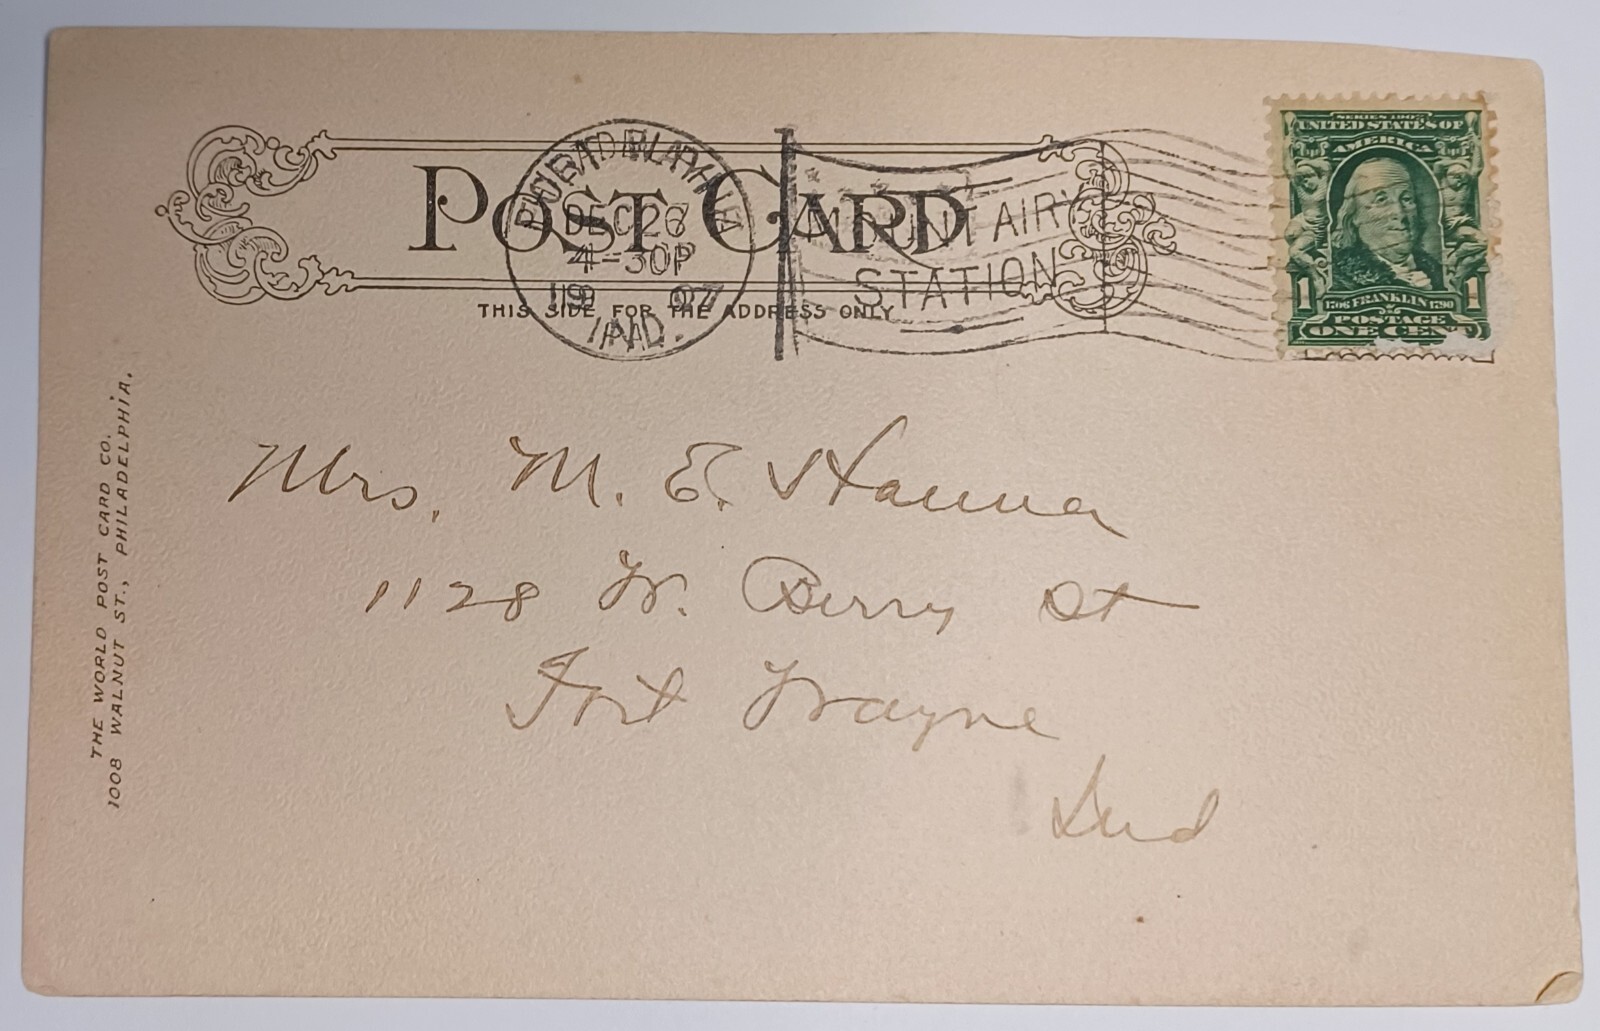 POST CARD
THIS SIDE FOR THE ADDRESS ONLY
DEC 26
4-30P
1907
STATION
SERIES 1902
UNITED STATES OF
AMERICA
1 1706 FRANKLIN 1790 1
POSTAGE
ONE CENT
THE WORLD POST CARD CO.
1008 WALNUT ST., PHILADELPHIA.
Mrs. M. E. Hanna
1128 W. Berry St
Fort Wayne
Ind